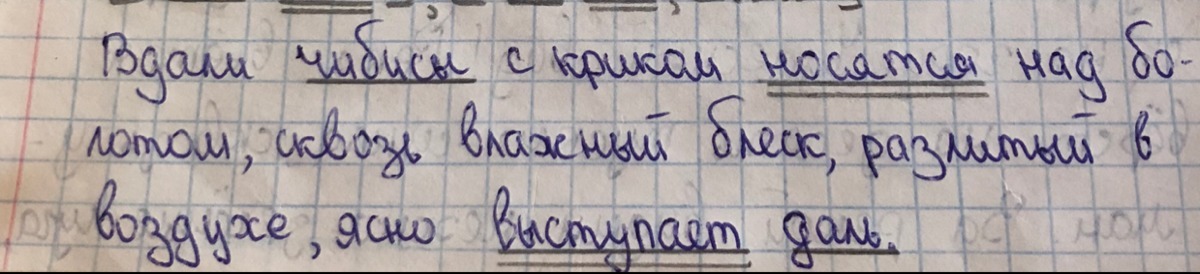 Вдали чибисы с криком носятся над бо-
лотом, сквозь влажный блеск, разлитый в
воздухе, ясно выступает даль.